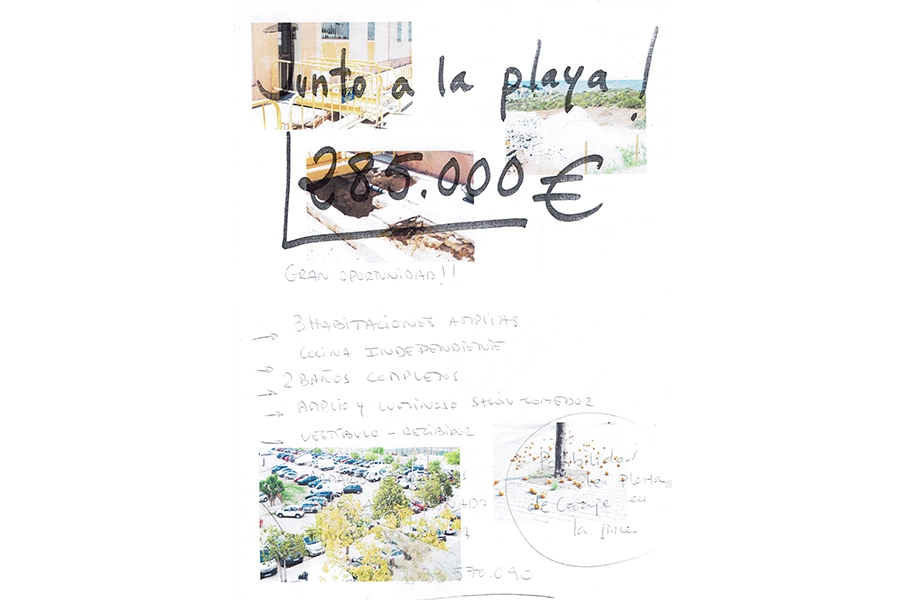 Junto a la playa!
285.000 €
GRAN OPORTUNIDAD!!
3 HABITACIONES AMPLIAS
COCINA INDEPENDIENTE
2 BAÑOS COMPLETOS
AMPLIO Y LUMINOSO SALÓN COMEDOR
VESTÍBULO - RECIBIDOR
Posibilidad
de plaza
de Garaje en
la finca
570.090